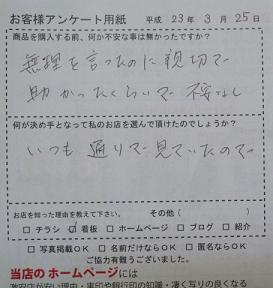 お客様アンケート用紙 平成 23年 3月 25日
商品を購入する前、何か不安な事は無かったですか?
無理を言ったのに親切で
助かったくらいで 不安なし
何が決め手となって私のお店を選んで頂けたのでしょうか?
いつも通りで見ていたので
お店を知った理由を教えて下さい。 その他( )
□ チラシ ☑ 看板 □ ホームページ □ ブログ □ 紹介
□ 写真掲載OK □ 名前だけならOK □ 匿名ならOK
ご協力有難うございました。
当店のホームページには
激安店が安い理由・実印や銀行印の知識・凄く写りの良くなる